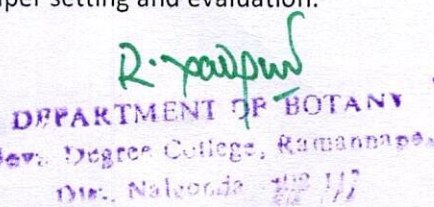 per setting and evaluation.
R.
DEPARTMENT OF BOTANY
Degree College, Ramannape
Dist., Nalgonda